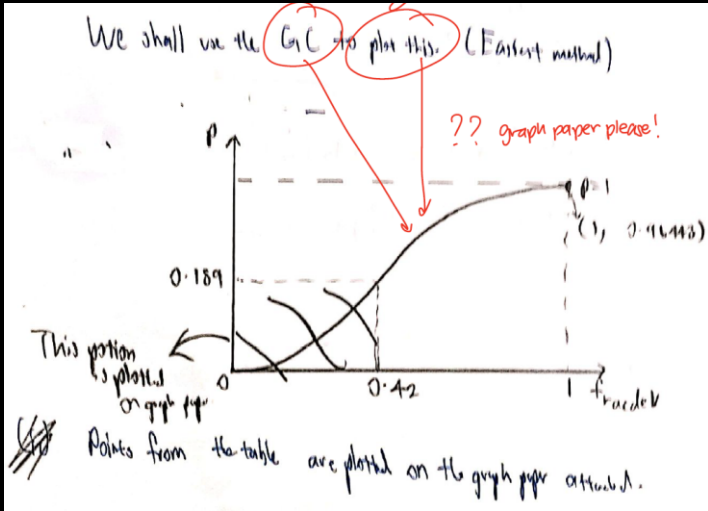 We shall use the GC to plot this. (Easiest method)
?? graph paper please!
P
P 1
(1, 0.96443)
0.189
This portion
is plotted
on graph paper
0
0.42
1 fracdev
Points from the table are plotted on the graph paper attached.